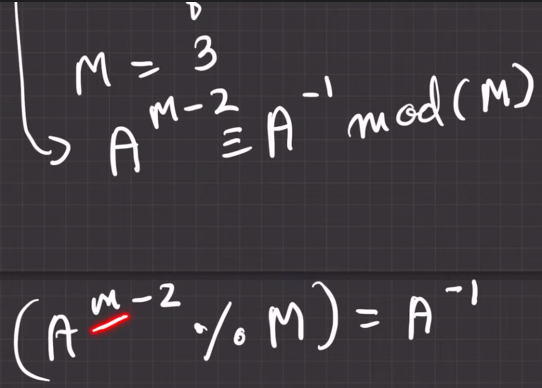 M = 3
A^{M-2} ≡ A^{-1} mod(M)
(A^{m-2} % M) = A^{-1}